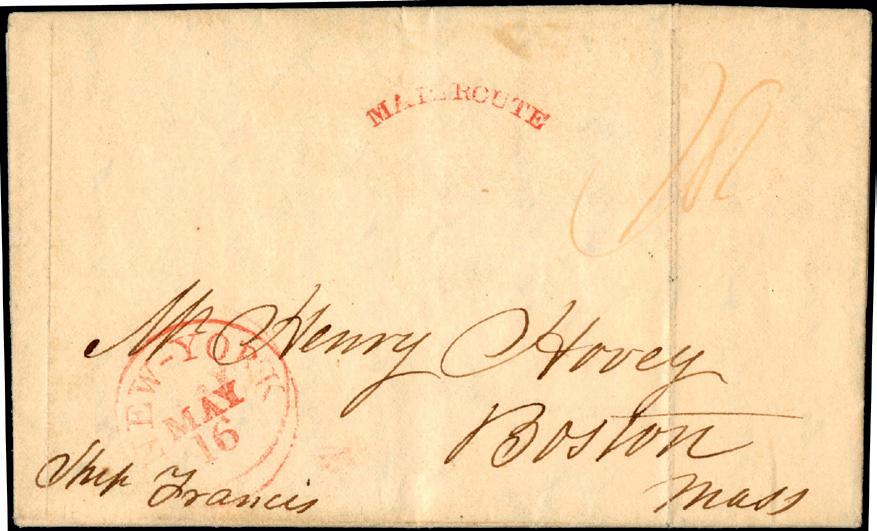 MAIL ROUTE
Mr. Henry Hovey
Boston
Mass
NEW-YORK
MAY
16
Ship Francis